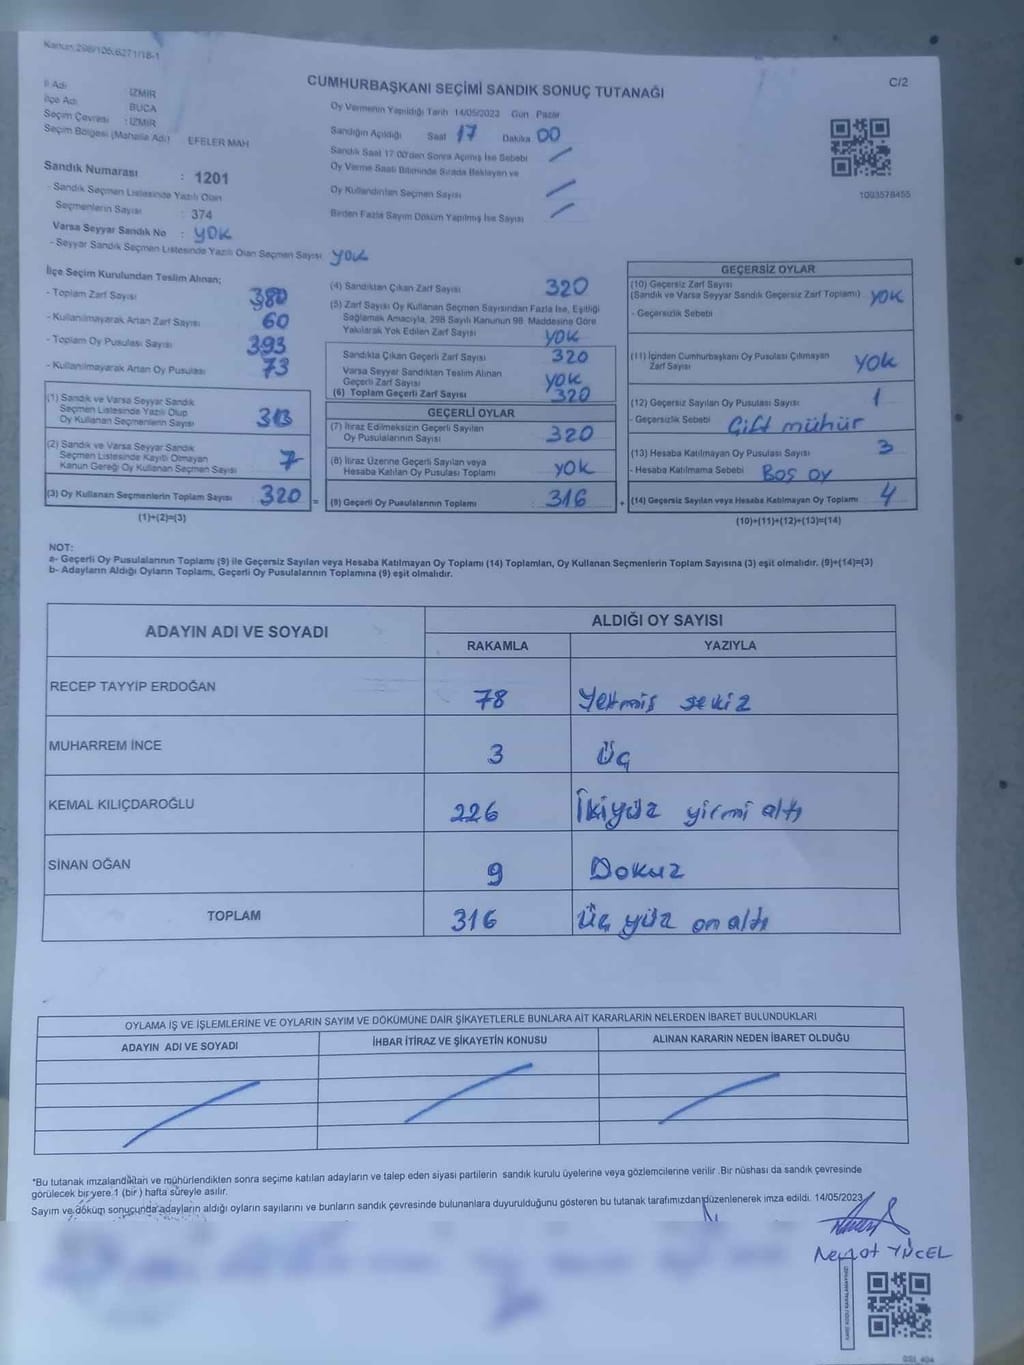 Kanun:298/105,6271/18-1
C/2
CUMHURBAŞKANI SEÇİMİ SANDIK SONUÇ TUTANAĞI
İl Adı : İZMİR
İlçe Adı : BUCA
Seçim Çevresi : İZMİR
Seçim Bölgesi (Mahalle Adı) EFELER MAH
Oy Vermenin Yapıldığı Tarih 14/05/2023 Gün Pazar
Sandığın Açıldığı Saat 17 Dakika 00
Sandık Saat 17:00'den Sonra Açılmış İse Sebebi
Oy Verme Saati Bitiminde Sırada Bekleyen ve
Oy Kullandırılan Seçmen Sayısı
Birden Fazla Sayım Döküm Yapılmış İse Sayısı
1003578455
Sandık Numarası : 1201
- Sandık Seçmen Listesinde Yazılı Olan
Seçmenlerin Sayısı : 374
Varsa Seyyar Sandık No : YOK
- Seyyar Sandık Seçmen Listesinde Yazılı Olan Seçmen Sayısı YOK
İlçe Seçim Kurulundan Teslim Alınan;
- Toplam Zarf Sayısı 380
- Kullanılmayarak Artan Zarf Sayısı 60
- Toplam Oy Pusulası Sayısı 393
- Kullanılmayarak Artan Oy Pusulası 73
(1) Sandık ve Varsa Seyyar Sandık
Seçmen Listesinde Yazılı Olup
Oy Kullanan Seçmenlerin Sayısı 313
(2) Sandık ve Varsa Seyyar Sandık
Seçmen Listesinde Kayıtlı Olmayan
Kanun Gereği Oy Kullanan Seçmen Sayısı 7
(3) Oy Kullanan Seçmenlerin Toplam Sayısı 320 =
(1)+(2)=(3)
(4) Sandıktan Çıkan Zarf Sayısı 320
(5) Zarf Sayısı Oy Kullanan Seçmen Sayısından Fazla İse, Eşitliği
Sağlamak Amacıyla, 298 Sayılı Kanunun 98. Maddesine Göre
Yakılarak Yok Edilen Zarf Sayısı YOK
Sandıkta Çıkan Geçerli Zarf Sayısı 320
Varsa Seyyar Sandıktan Teslim Alınan
Geçerli Zarf Sayısı YOK
(6) Toplam Geçerli Zarf Sayısı 320
GEÇERLİ OYLAR
(7) İtiraz Edilmeksizin Geçerli Sayılan
Oy Pusulalarının Sayısı 320
(8) İtiraz Üzerine Geçerli Sayılan veya
Hesaba Katılan Oy Pusulası Toplamı YOK
(9) Geçerli Oy Pusulalarının Toplamı : 316 +
GEÇERSİZ OYLAR
(10) Geçersiz Zarf Sayısı
(Sandık ve Varsa Seyyar Sandık Geçersiz Zarf Toplamı) YOK
- Geçersizlik Sebebi
(11) İçinden Cumhurbaşkanı Oy Pusulası Çıkmayan
Zarf Sayısı YOK
(12) Geçersiz Sayılan Oy Pusulası Sayısı 1
- Geçersizlik Sebebi Çift mühür
(13) Hesaba Katılmayan Oy Pusulası Sayısı 3
- Hesaba Katılmama Sebebi BOŞ OY
(14) Geçersiz Sayılan veya Hesaba Katılmayan Oy Toplamı 4
(10)+(11)+(12)+(13)=(14)
NOT:
a- Geçerli Oy Pusulalarının Toplamı (9) ile Geçersiz Sayılan veya Hesaba Katılmayan Oy Toplamı (14) Toplamları, Oy Kullanan Seçmenlerin Toplam Sayısına (3) eşit olmalıdır. (9)+(14)=(3)
b- Adayların Aldığı Oyların Toplamı, Geçerli Oy Pusulalarının Toplamına (9) eşit olmalıdır.
ADAYIN ADI VE SOYADI
ALDIĞI OY SAYISI
RAKAMLA YAZIYLA
RECEP TAYYİP ERDOĞAN 78 Yetmiş sekiz
MUHARREM İNCE 3 Üç
KEMAL KILIÇDAROĞLU 226 İkiyüz yirmi altı
SİNAN OĞAN 9 Dokuz
TOPLAM 316 Üç yüz on altı
OYLAMA İŞ VE İŞLEMLERİNE VE OYLARIN SAYIM VE DÖKÜMÜNE DAİR ŞİKAYETLERLE BUNLARA AİT KARARLARIN NELERDEN İBARET BULUNDUKLARI
ADAYIN ADI VE SOYADI İHBAR İTİRAZ VE ŞİKAYETİN KONUSU ALINAN KARARIN NEDEN İBARET OLDUĞU
*Bu tutanak imzalandıktan ve mühürlendikten sonra seçime katılan adayların ve talep eden siyasi partilerin sandık kurulu üyelerine veya gözlemcilerine verilir .Bir nüshası da sandık çevresinde
görülecek bir yere 1 (bir ) hafta süreyle asılır.
Sayım ve döküm sonucunda adayların aldığı oyların sayılarını ve bunların sandık çevresinde bulunanlara duyurulduğunu gösteren bu tutanak tarafımızdan düzenlenerek imza edildi. 14/05/2023
Nevzat YÜCEL